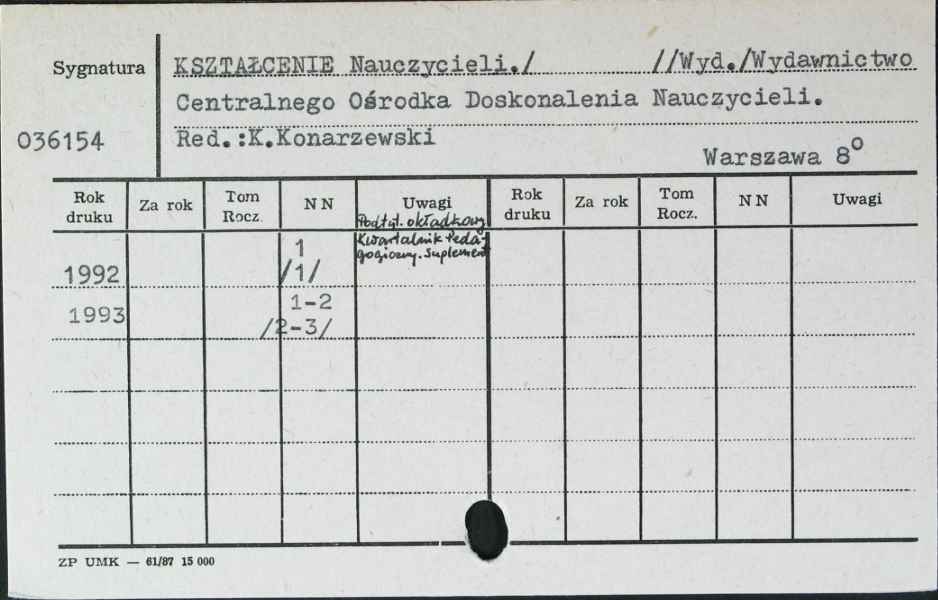 Sygnatura KSZTAŁCENIE Nauczycieli./ //Wyd./Wydawnictwo
Centralnego Ośrodka Doskonalenia Nauczycieli.
036154 Red.:K.Konarzewski
Warszawa 8°
Rok druku Za rok Tom Rocz. NN Uwagi Rok druku Za rok Tom Rocz. NN Uwagi
Podtyt. okładkowy
Kwartalnik Peda-
gogiczny. Suplement
1
1992 /1/
1993 1-2
/2-3/
ZP UMK — 61/87 15 000